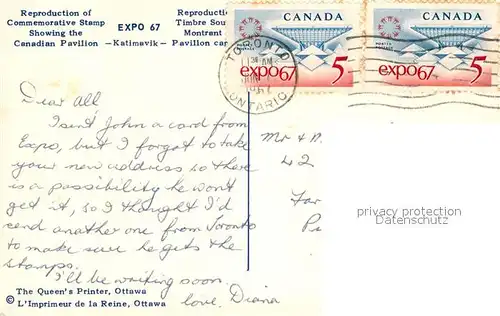 Reproduction of
Commemorative Stamp
Showing the
Canadian Pavilion
EXPO 67
—Katimavik—
Reproducti
Timbre Sou
Montrant
Pavillon ca
CANADA
expo67 5
CANADA
expo67 5
TORONTO
ONTARIO
Dear All
I sent John a card from
Expo, but I forgot to take
your new address, so there
is a possibility he won't
get it, so I thought I'd
send another one from Toronto
to make sure he gets the
stamps.
I'll be writing soon.
love. Diana
Mr &
42
privacy protection
Datenschutz
The Queen's Printer, Ottawa
© L'Imprimeur de la Reine, Ottawa